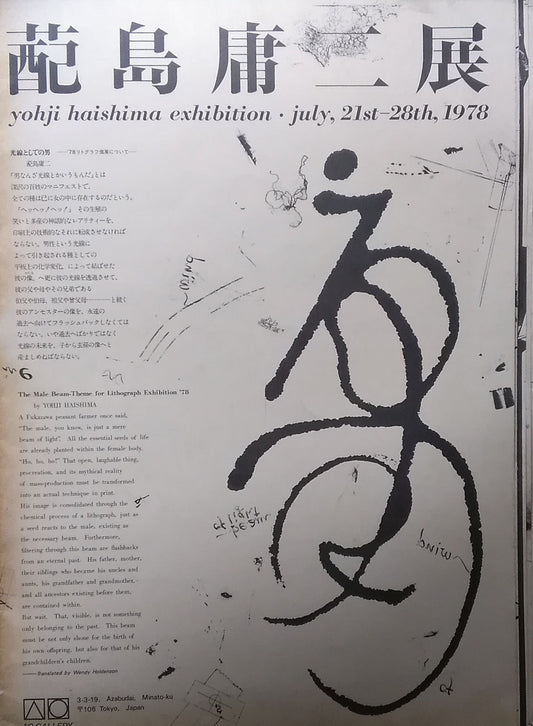 蓜島庸二展
yohji haishima exhibition · july, 21st–28th, 1978
光線としての男 ――'78リトグラフ個展について――
蓜島庸二
「男なんざ光線とかいうもんだ」とは
深沢の百姓のマニフェストで、
全ての種は已に女の中に存在するのだという。
「ヘッヘッ！ヘッ！」 その生殖の
笑いと多産の神話的なレアリティーを、
印刷上の技術的なそれに転成させなければ
ならない。男性という光線に
よって引き起される種としての
平板上の化学変化。よって結ばせた
彼の像。へ更に彼の光線を透過させて、
彼の父や母やその兄弟である
伯父や伯母、祖父や曾父母――――と続く
彼のアンセスターの像を、永遠の
過去へ向けてフラッシュバックしなくては
ならない。いや過去へばかりではなく
光線の未来を、子から玄孫の像へと
産ましめねばならない。
The Male Beam-Theme for Lithograph Exhibition '78
by YOHJI HAISHIMA
A Fukazawa peasant farmer once said,
"The male, you know, is just a mere
beam of light". All the essential seeds of life
are already planted within the female body.
"Ho, ho, ho!" That open, laughable thing,
procreation, and its mythical reality
of mass-production must be transformed
into an actual technique in print.
His image is consolidated through the
chemical process of a lithograph, just as
a seed reacts to the male, existing as
the necessary beam. Forthermore,
filtering through this beam are flashbacks
from an eternal past. His father, mother,
their siblings who became his uncles and
aunts, his grandfather and grandmother,
and all ancestors existing before them,
are contained within.
But wait. That, visible, is not something
only belonging to the past. This beam
must be not only shone for the birth of
his own offspring, but also for that of his
grandchildren's children.
――translated by Wendy Holdenson
3-3-19, Azabudai, Minato-ku
〒106 Tokyo, Japan
GALLERY